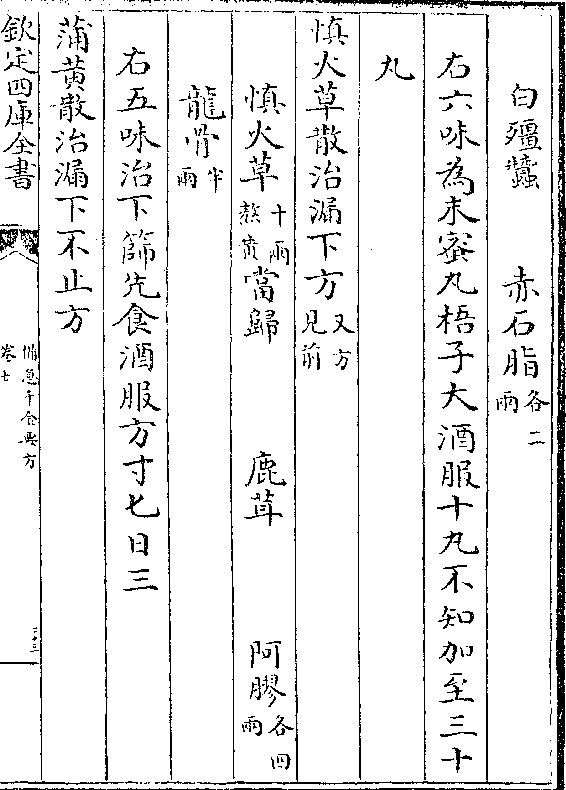 白殭蠶　赤石脂各二兩
右六味為末蜜丸梧子大酒服十丸不知加至三十
丸
慎火草散治漏下方又方見前
慎火草十兩熬黄　當歸　鹿茸　阿膠各四兩
龍骨半兩
右五味治下篩先食酒服方寸匕日三
蒲黄散治漏下不止方
欽定四庫全書
備急千金要方
卷七